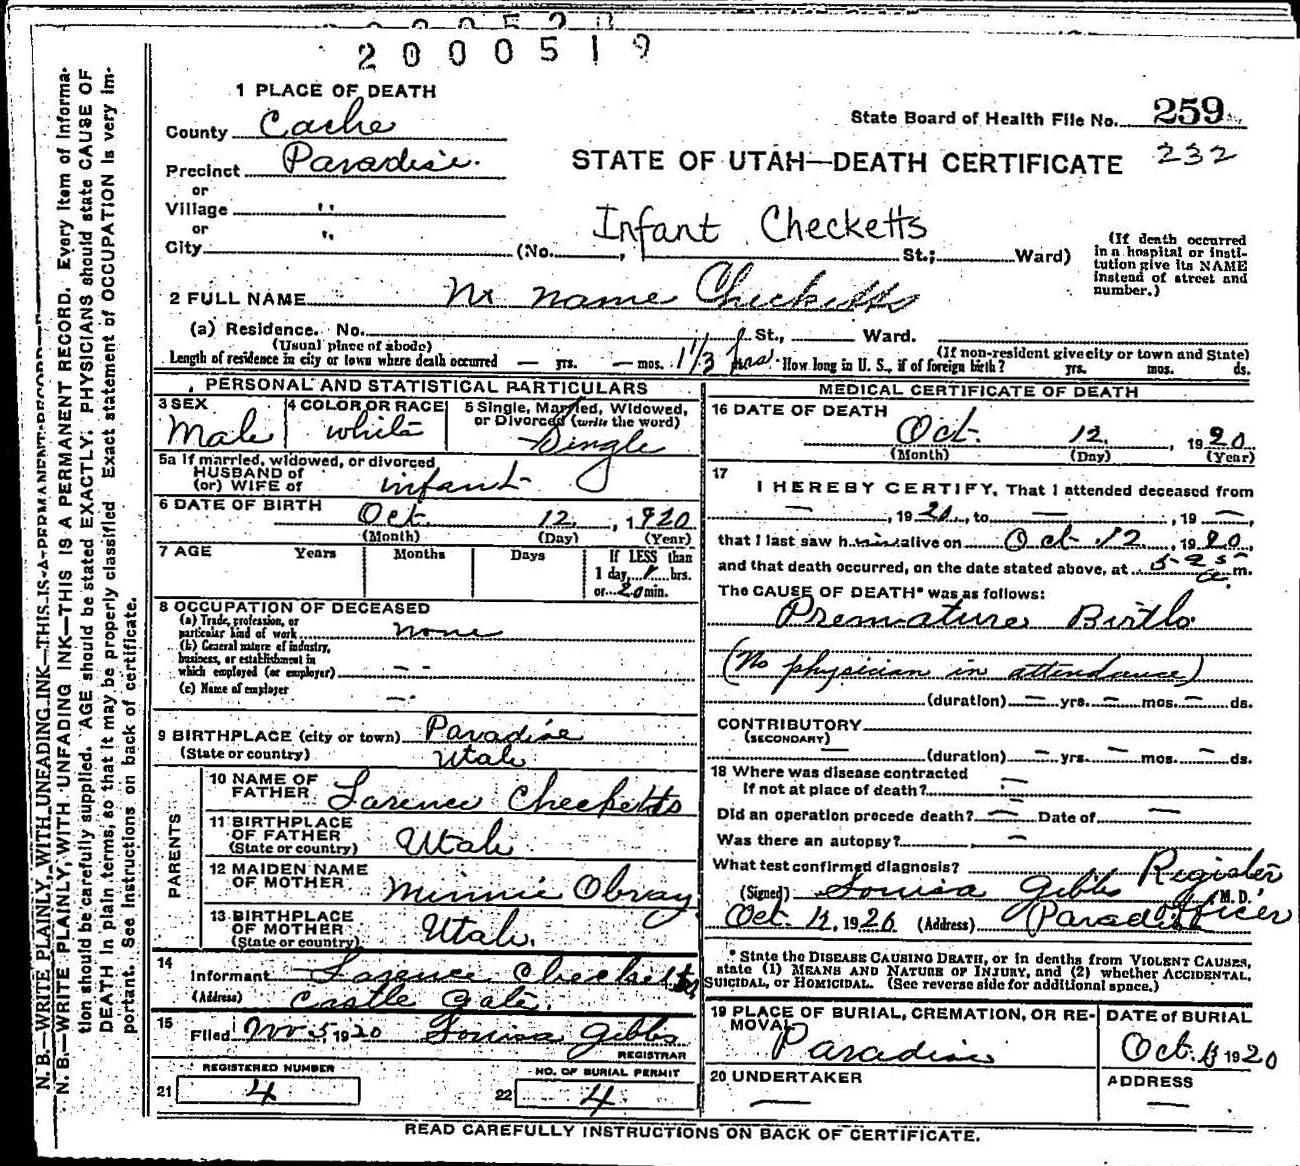 2000519
1 PLACE OF DEATH
County Cache
State Board of Health File No. 259
Precinct Paradise.
STATE OF UTAH—DEATH CERTIFICATE 232
or
Village " "
or
Infant Checketts
City " (No. , St.; Ward)
(If death occurred
in a hospital or insti-
tution give its NAME
instead of street and
number.)
2 FULL NAME No name Checketts
(a) Residence. No. St., Ward.
(Usual place of abode) (If non-resident give city or town and State)
Length of residence in city or town where death occurred — yrs. — mos. 1 1/3 hrs. How long in U. S., if of foreign birth? yrs. mos. ds.
PERSONAL AND STATISTICAL PARTICULARS
3 SEX
Male
4 COLOR OR RACE
white
5 Single, Married, Widowed,
or Divorced (write the word)
Single
5a If married, widowed, or divorced
HUSBAND of
(or) WIFE of infant
6 DATE OF BIRTH
Oct. 12, 1920
(Month) (Day) (Year)
7 AGE Years Months Days If LESS than
1 day, 1 hrs.
or 20 min.
8 OCCUPATION OF DECEASED
(a) Trade, profession, or
particular kind of work none
(b) General nature of industry,
business, or establishment in
which employed (or employer) —
(c) Name of employer —
9 BIRTHPLACE (city or town) Paradise
(State or country) Utah
PARENTS
10 NAME OF
FATHER Larence Checketts
11 BIRTHPLACE
OF FATHER
(State or country) Utah
12 MAIDEN NAME
OF MOTHER Minnie Obray
13 BIRTHPLACE
OF MOTHER
(State or country) Utah.
14
Informant Larence Checketts
(Address) Castle Gate
15
Filed Nov 5, 1920 Louisa Gibbs
REGISTRAR
REGISTERED NUMBER
21 4
NO. OF BURIAL PERMIT
22 4
MEDICAL CERTIFICATE OF DEATH
16 DATE OF DEATH
Oct. 12, 1920
(Month) (Day) (Year)
17
I HEREBY CERTIFY, That I attended deceased from
—, 1920, to —, 19 —,
that I last saw him alive on Oct 12, 1920,
and that death occurred, on the date stated above, at 5-25 a m.
The CAUSE OF DEATH* was as follows:
Premature Birth
(No physician in attendance)
(duration) — yrs. — mos. — ds.
CONTRIBUTORY
(SECONDARY) —
(duration) — yrs. — mos. — ds.
18 Where was disease contracted
If not at place of death? —
Did an operation precede death? — Date of —
Was there an autopsy? —
What test confirmed diagnosis?
(Signed) Louisa Gibbs Register M. D.
Oct. 12, 1920 (Address) Paradise Officer
* State the DISEASE CAUSING DEATH, or in deaths from VIOLENT CAUSES,
state (1) MEANS AND NATURE OF INJURY, and (2) whether ACCIDENTAL,
SUICIDAL, or HOMICIDAL. (See reverse side for additional space.)
19 PLACE OF BURIAL, CREMATION, OR RE-
MOVAL
Paradise
DATE of BURIAL
Oct. 13 1920
20 UNDERTAKER
—
ADDRESS
—
READ CAREFULLY INSTRUCTIONS ON BACK OF CERTIFICATE.
N. B.—WRITE PLAINLY, WITH UNFADING INK—THIS IS A PERMANENT RECORD
N. B.—WRITE PLAINLY, WITH UNFADING INK—THIS IS A PERMANENT RECORD. Every Item of Informa-
tion should be carefully supplied. AGE should be stated EXACTLY. PHYSICIANS should state CAUSE OF
DEATH in plain terms, so that it may be properly classified. Exact statement of OCCUPATION is very im-
portant. See instructions on back of certificate.